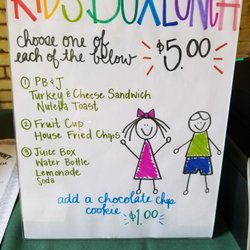 KIDS BOX LUNCH
choose one of
each of the below
$5.00
① PB & J
Turkey & Cheese Sandwich
Nutella Toast
② Fruit Cup
House Fried Chips
③ Juice Box
Water Bottle
Lemonade
Soda
add a chocolate chip
cookie $1.00